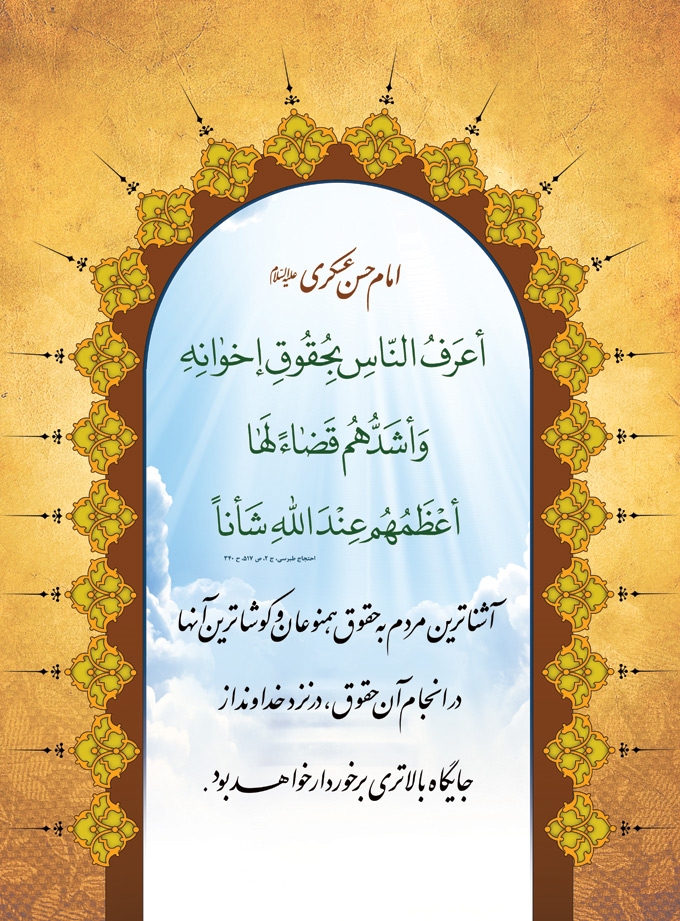 امام حسن عسکری علیه‌السلام
أعرَفُ النّاسِ بِحُقُوقِ إخوٰانِهِ
وَأشَدُّهُم قَضٰاءً لَهٰا
أعْظَمُهُم عِنْدَ اللّٰهِ شَأناً
احتجاج طبرسی، ج ۲، ص ۵۱۷، ح ۳۴۰
آشناترین مردم به حقوق همنوعان و کوشاترین آنها
در انجام آن حقوق، در نزد خداوند از
جایگاه بالاتری برخوردار خواهد بود.